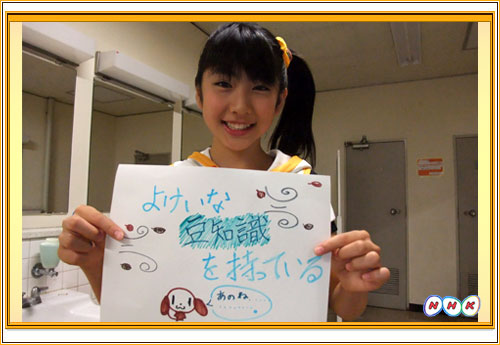 よけいな
豆知識
を持っている
あのね......
NHK